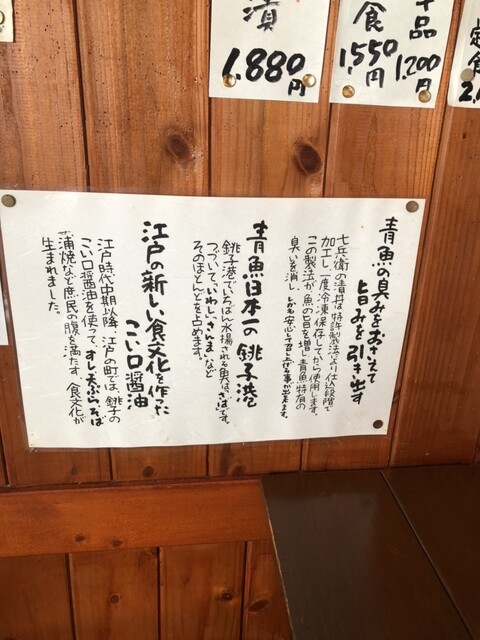 漬
1.880円
食
1.550円
品
1.200円
定食
青魚の臭みをおさえて
旨みを引き出す
七兵衛の青丼は特許製法より仕込段階で
加工し一度冷凍保存してから使用します。
この製法が、魚の旨を増し青魚特有の
臭いを消し、しかも安心して召し上がる事が出来ます。
青魚日本一の銚子港
銚子港でいちばん水揚される魚は、"さば"です。
つづいて、"いわし"、"さんま"など
そのほとんどを占めます。
江戸の新しい食文化を作った
こい口醤油
江戸時代中期以降、江戸の町では、銚子の
こい口醤油を使って、すし天ぷら、そば
蒲焼など庶民の腹を満たす、食文化が
生まれました。